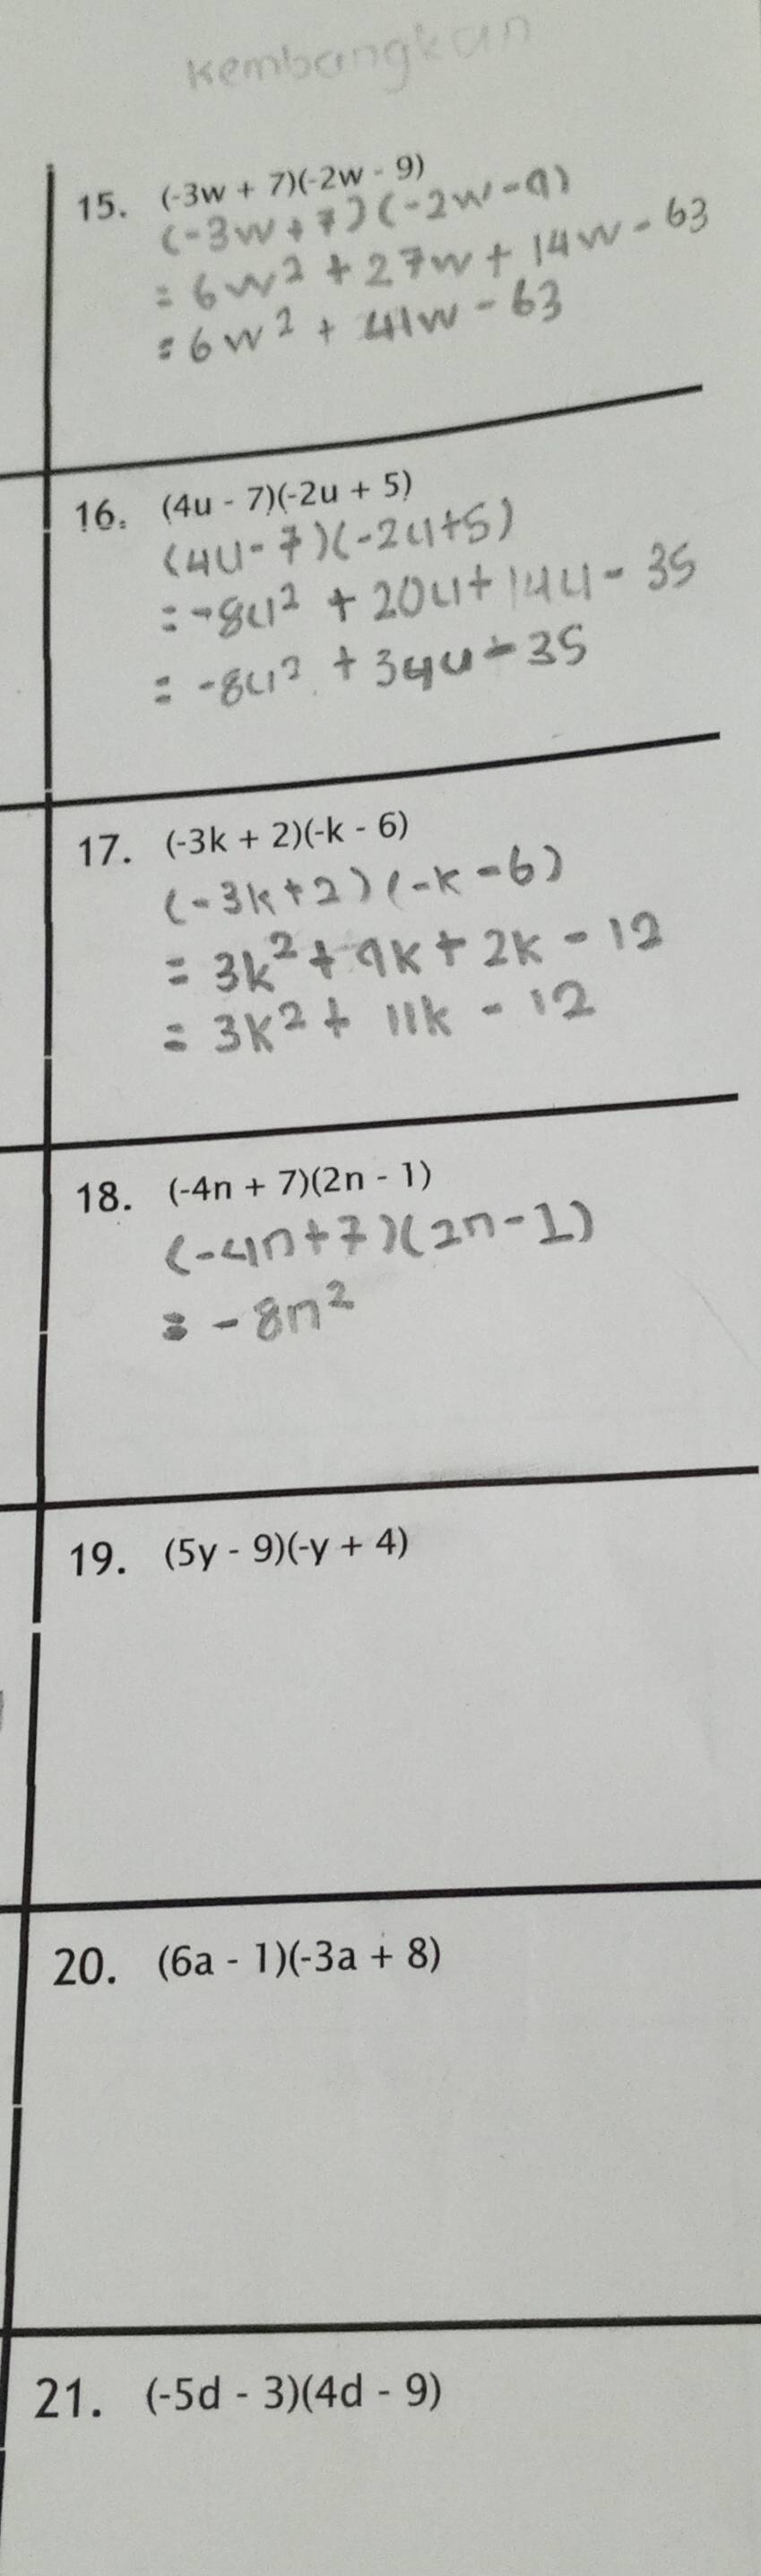 Kembangkan
15. (-3w + 7)(-2w - 9)
(-3w+7)(-2w-9)
= 6w² + 27w + 14w - 63
= 6w² + 41w - 63
16. (4u - 7)(-2u + 5)
(4u-7)(-2u+5)
= -8u² + 20u + 14u - 35
= -8u² + 34u - 35
17. (-3k + 2)(-k - 6)
(-3k+2)(-k-6)
= 3k² + 9k + 2k - 12
= 3k² + 11k - 12
18. (-4n + 7)(2n - 1)
(-4n+7)(2n-1)
= -8n²
19. (5y - 9)(-y + 4)
20. (6a - 1)(-3a + 8)
21. (-5d - 3)(4d - 9)